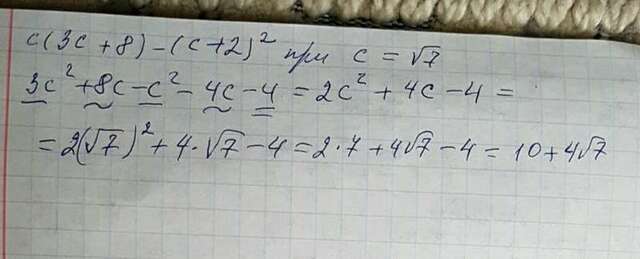 c(3c+8)-(c+2)² при c = √7
3c²+8c-c²-4c-4 = 2c²+4c-4 =
= 2(√7)²+4·√7-4 = 2·7+4√7-4 = 10+4√7